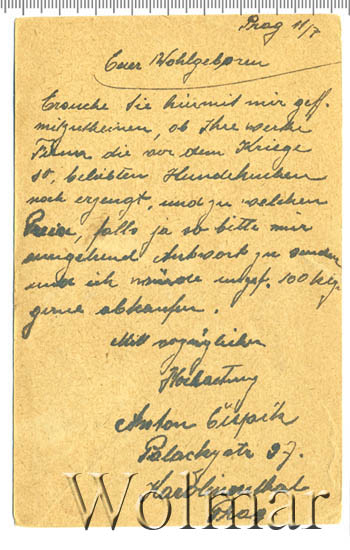 Prag 11/7
Euer Wohlgeboren
Ersuche Sie hiermit mir gefl.
mitzutheinen, ob Ihre werke
Firma die vor dem Kriege
so, beliebten Hundekuchen
noch erzeugt, und zu welchen
Preise, falls ja so bitte mir
umgehend Antwort zu senden
und ich würde ungef. 100 klg.
gerne abkaufen.
Mitt vorzüglichen
Hochachtung
Anton
Palackystr 97.
Karolinenthal
Prag
Wolmar